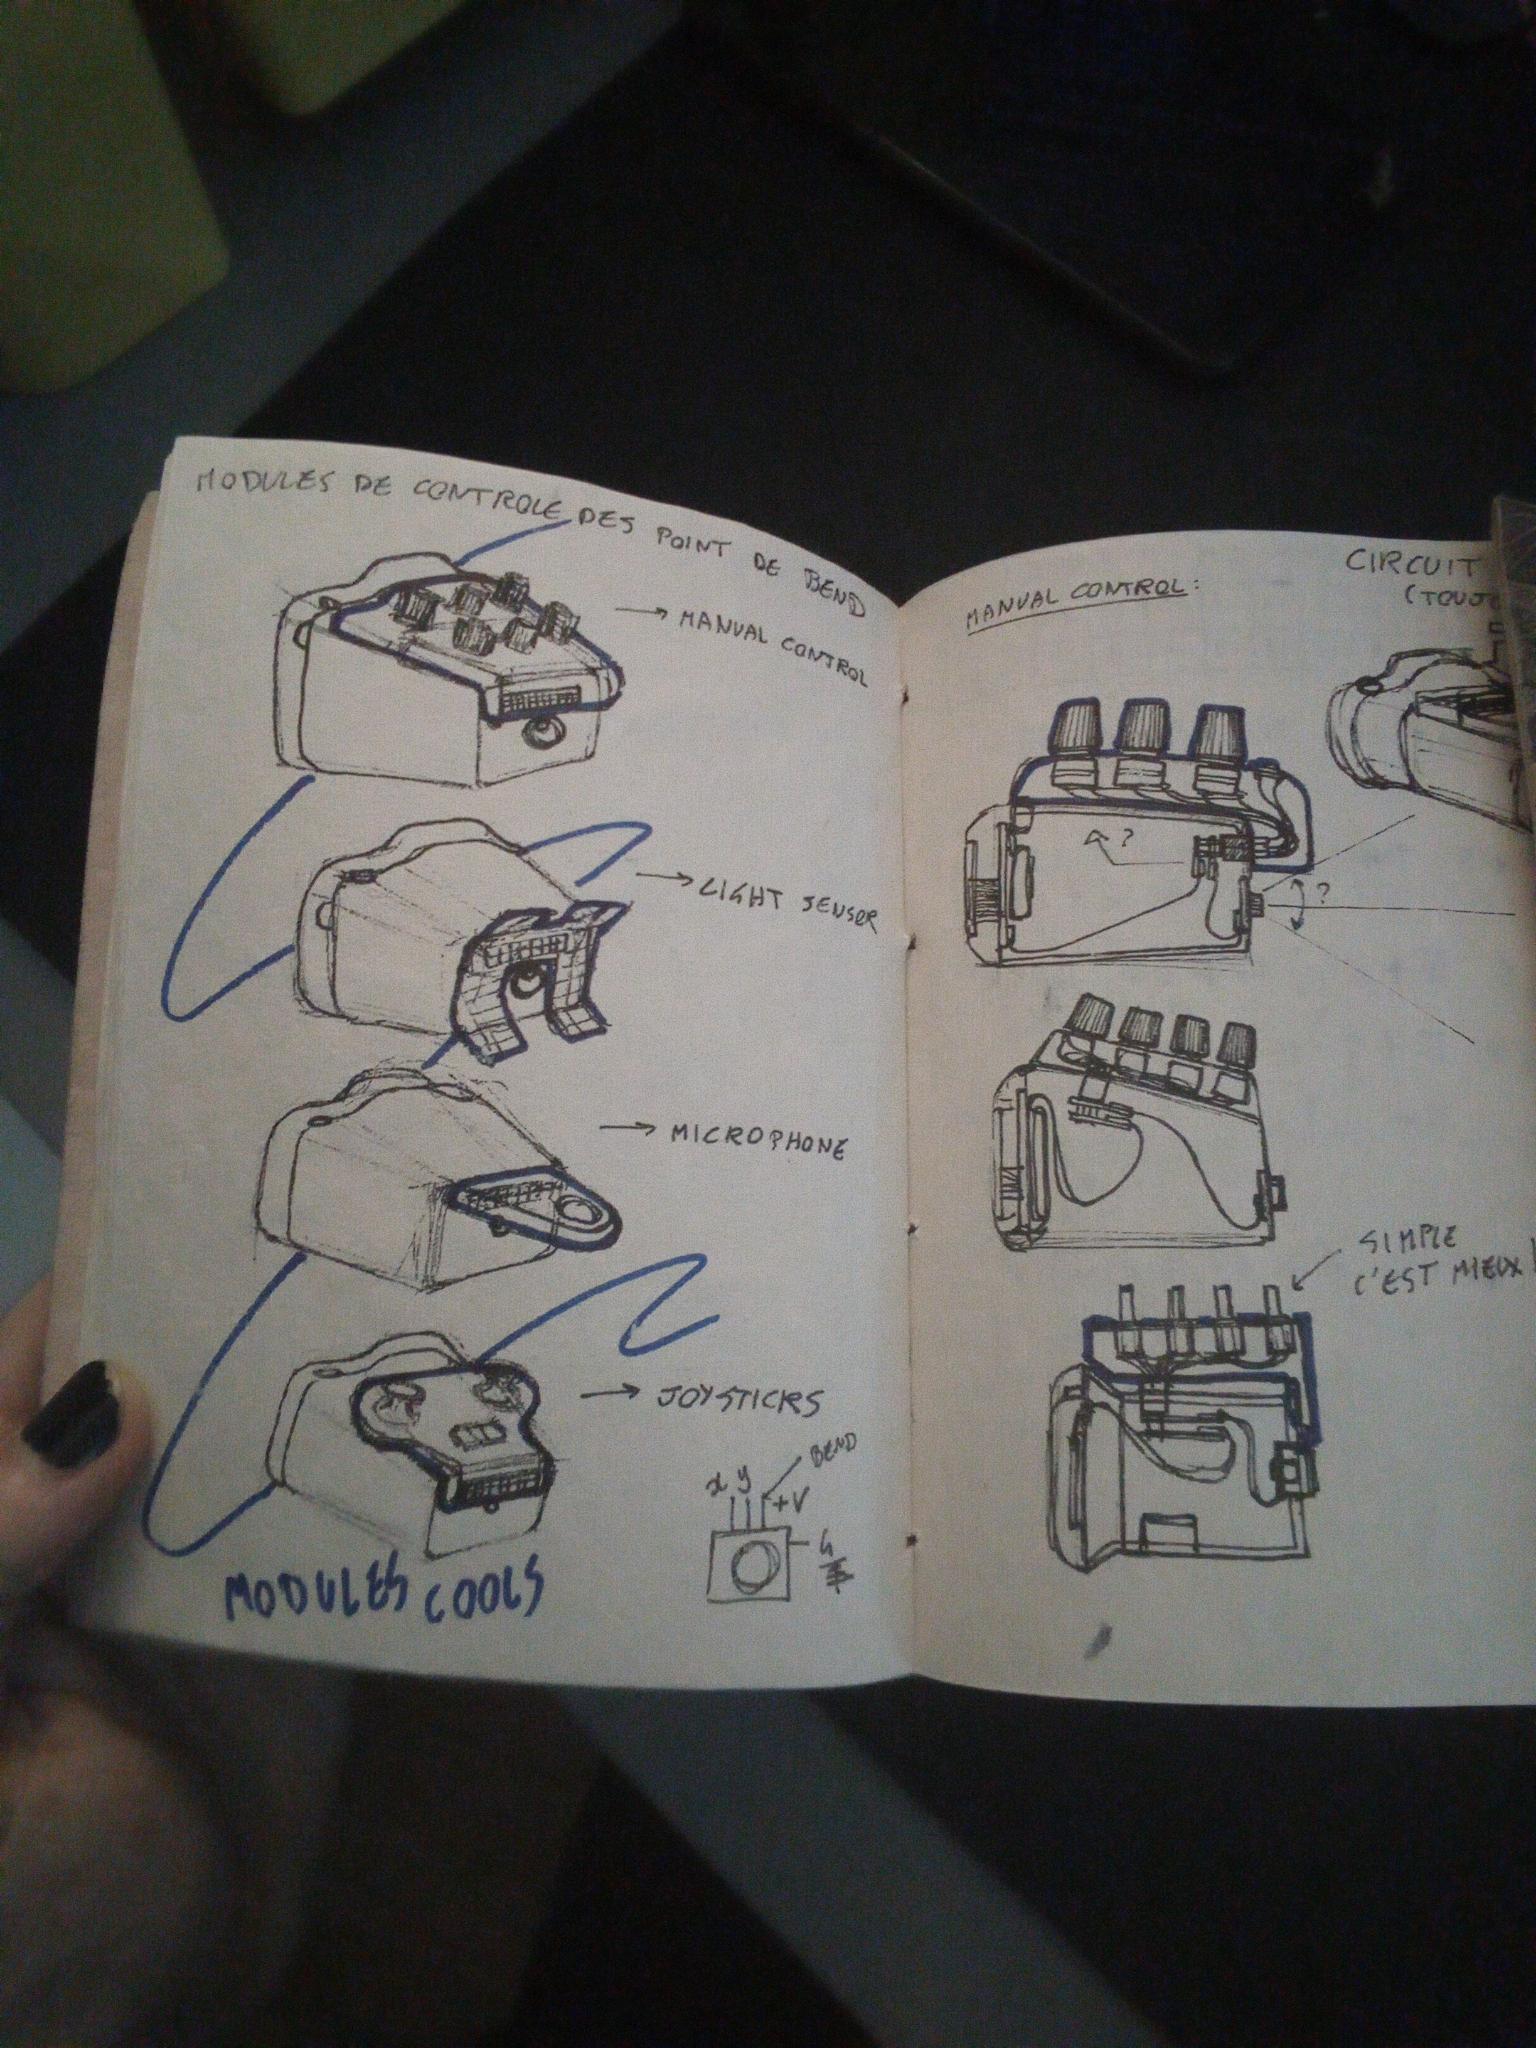 MODULES DE CONTROLE DES POINT DE BEND
→ MANUAL CONTROL
→ LIGHT SENSOR
→ MICROPHONE
→ JOYSTICKS
BEND
x y +V
MODULES COOLS
MANUAL CONTROL:
CIRCUIT
?
?
SIMPLE
C'EST MIEUX!